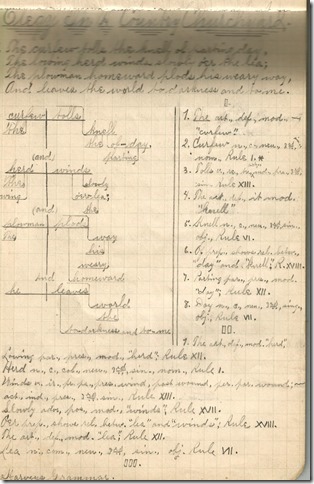 Elegy in a Country Churchyard.
The curfew tolls the knell of parting day,
The lowing herd winds slowly o'er the lea;
The plowman homeward plods his weary way,
And leaves the world to darkness and to me.
curfew tolls
the knell
the of day
(and parting
herd winds
the slowly
wing o'er lea;
(and the
plowman plods
the way
his
weary,
and homeward
he leaves
world
the
to darkness and to me
I.
1. The art., def., mod.
"curfew".
2. Curfew n., c., neu., 3rd,
nom. Rule I.
3. Tolls
sin. Rule XIII.
4. The art., def., mod.
"knell"
5. Knell n., c., neu., 3rd, sin.
obj. Rule VI.
6. Of prep., shows rel. betw.
"day" and "knell"; R. XVIII.
7. Parting par., pres., mod.
"day"; Rule XII.
8. Day n., c., neu., 3rd, sing.,
obj., Rule VII.
II.
1. The art., def., mod. "herd".
Lowing par., pres., mod. "herd"; Rule XII.
Herd n., c., col., neu., 3rd, sin., nom., Rule I.
Winds v., ir., pres., wind, past wound, per. par. wound;
act., ind., pres., 3rd, sin. Rule XIII.
Slowly adv., mod. "winds"; Rule XVII.
O'er prep., shows rel. betw. "lea" and "winds"; Rule XVIII.
The art., def., mod. "lea"; Rule XII.
Lea n., c., neu., 3rd, sin., obj. Rule VII.
III.
Harveys Grammar.